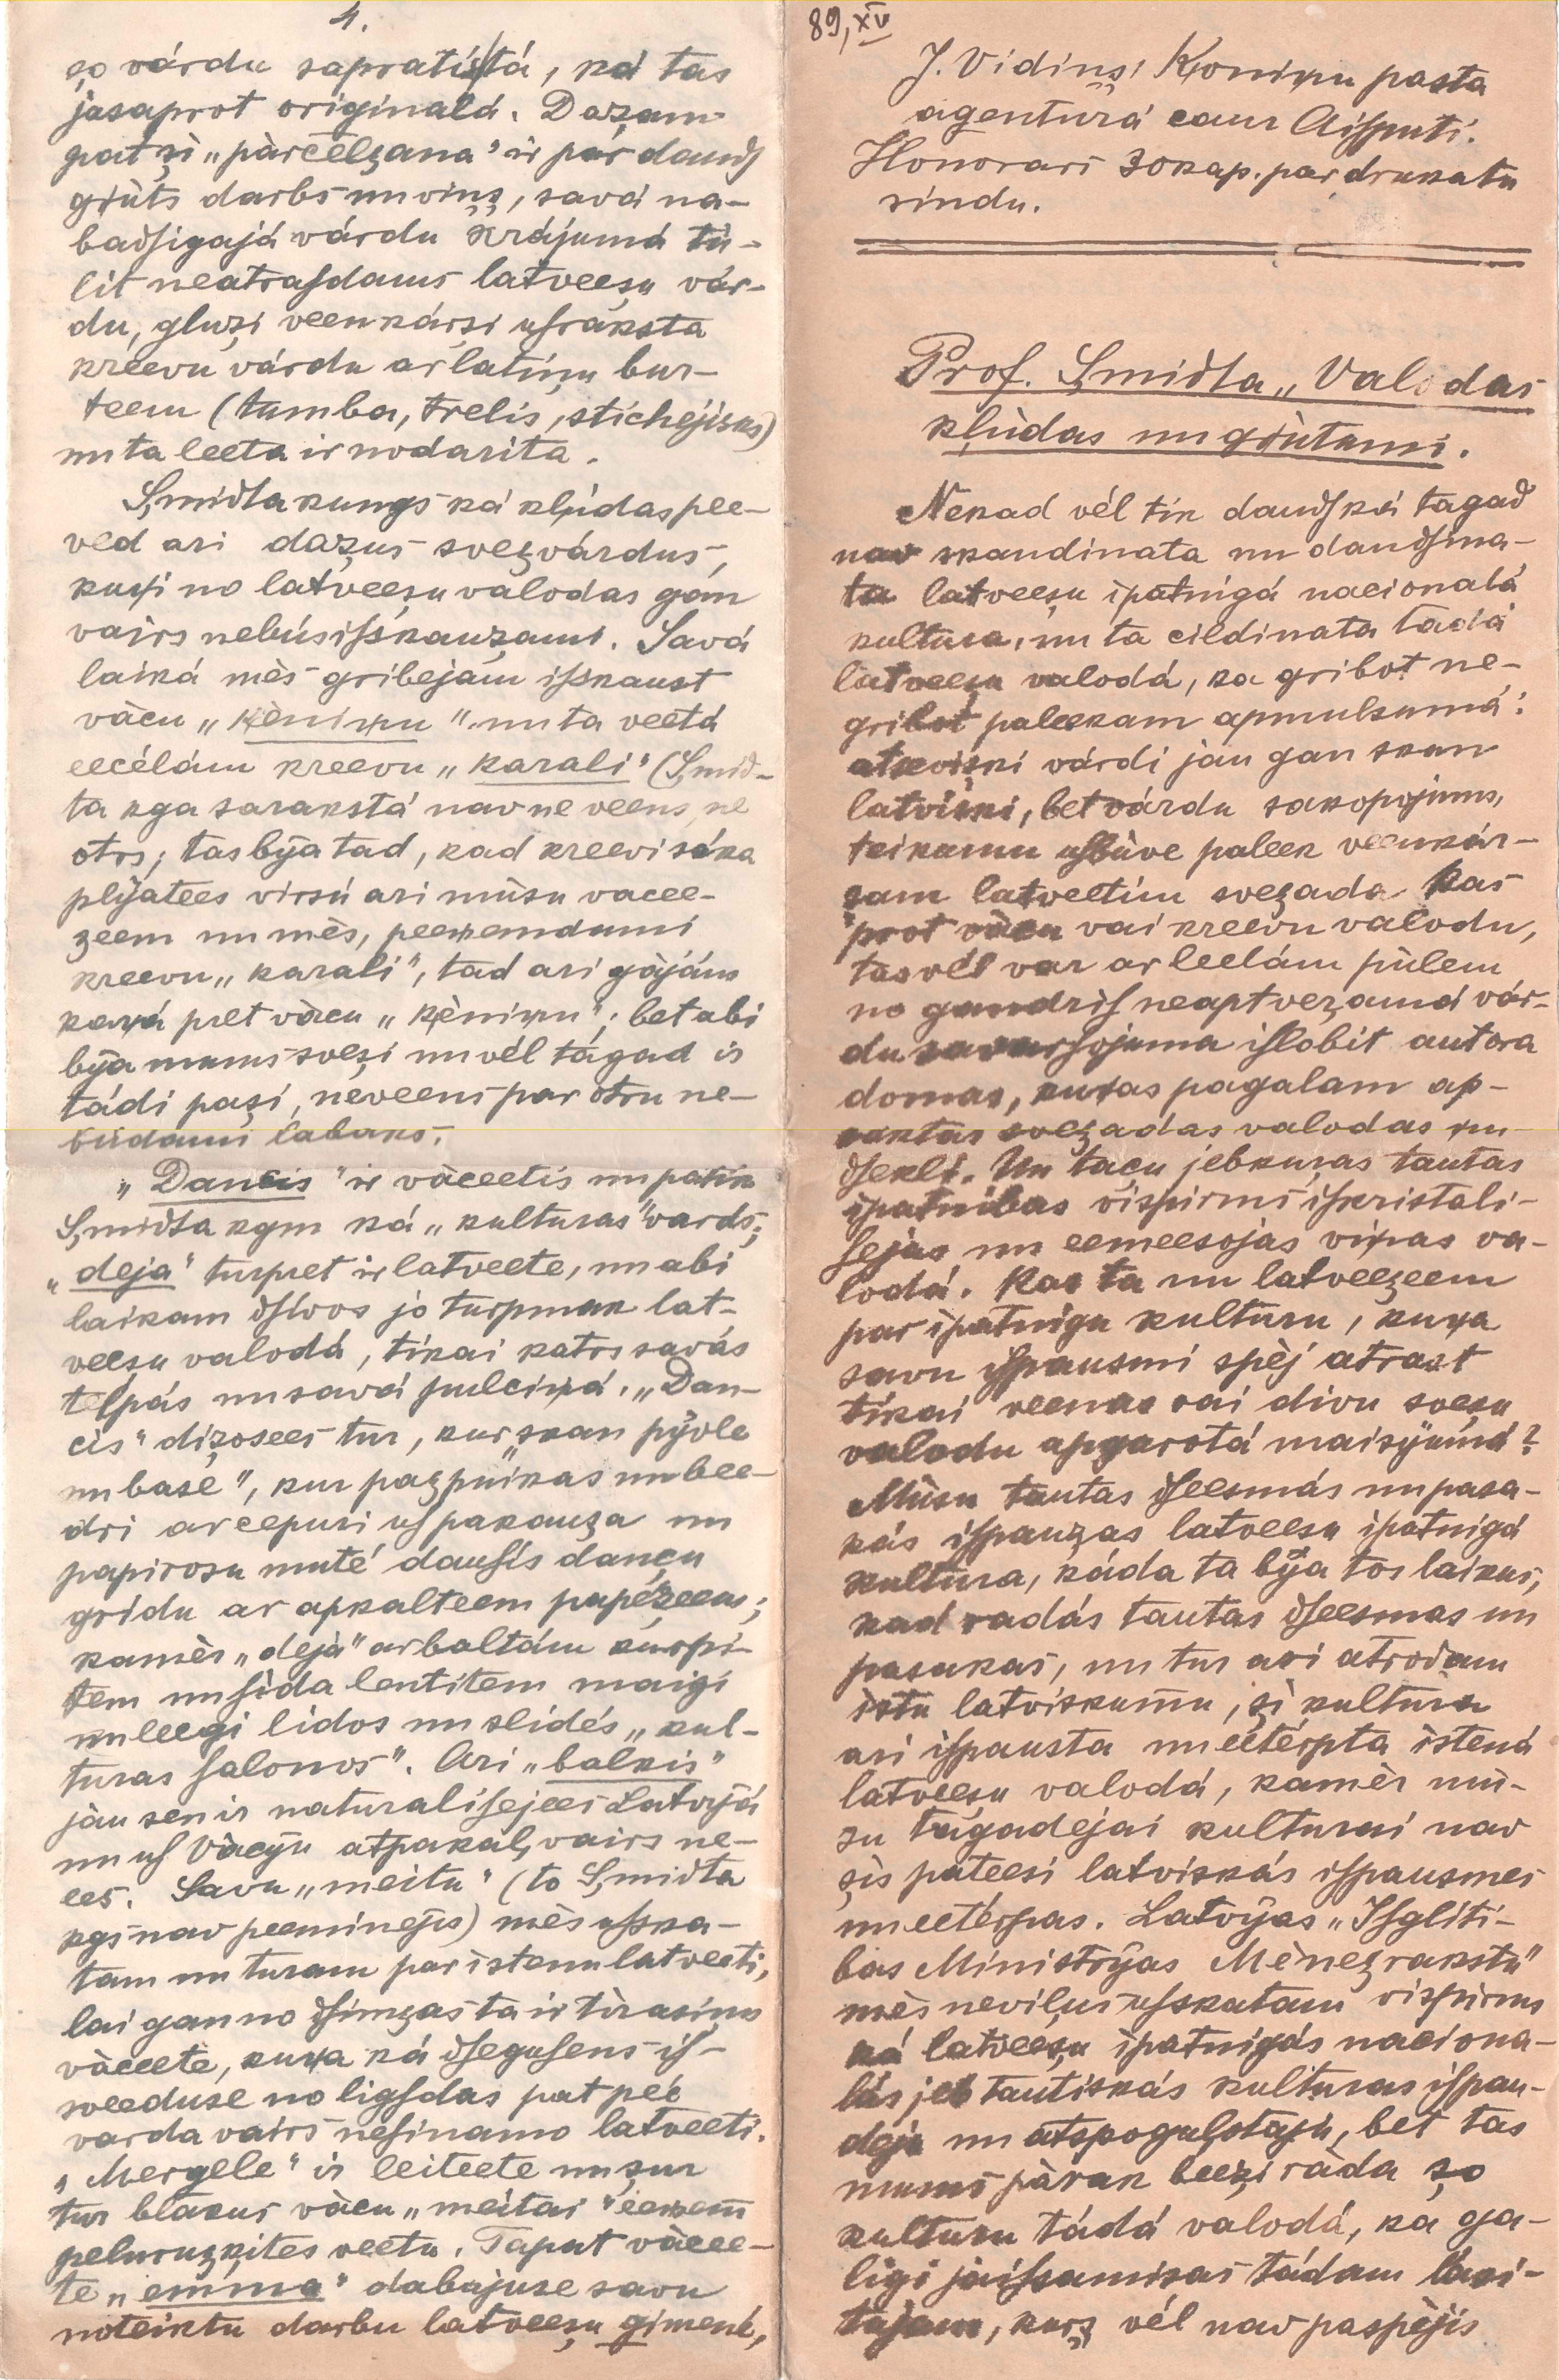 4.
şo várdu sapratístá, ká tas
jasaprot originalá. Dazam
pat şi „pàrcelşana" ir par daudſ
grùts darbs un vinş, savá na-
badſigajá várdu krájumá tú-
lit neatraſdams latveeşu vár-
du, gluzi veenkárşi uſraksta
kreevu várdu ar latiņu bur-
teem (tumba, trelis, stichejisks)
un ta leeta ir nodarita.
Şmidta kungs ká kļúdas pee-
ved ari dazus sveşvárdus,
kuŗi no latveeşu valodas gan
vairs nebús iſskauzami. Savá
laiká mès gribejám iſskaust
vàcu „ķèniņu" un ta veetá
eecélám kreevu „karali" (Şmid-
ta kga sarakstá nav ne veens, ne
otrs; tas bÿa tad, kad kreevi sáka
plÿatees virsú ari músu vacee-
şeem un mès, peeņemdami
kreevu „karali", tad ari gájám
kaŗá pret vàcu „ķèniņu"; bet abi
bÿa mums sveşi un vél tágad ir
tádi paşi, neveens par otru ne-
búdami labaks.
„Dancis" ir vàceetis un patik
Şmidta kgm ká „kulturas" vards;
„deja" turpret ir latveete, un abi
laikam dſívos jo turpmak lat-
veeşu valodá, tikai katrs savás
telpás un savá pulciņá. „Dan-
cis" dizosees tur, kur skan pÿole
un base", kur pazpuikas un bee-
dri ar cepuri uſ pakauşa un
papirosu muté dauſís dančů
gridu ar apkalteem papéşeem;
kamèr „deja" ar baltám kurpi-
tem un ſida lentitem maigi
un leegi lidos un slidés „kul-
turas ſalonos". Ari „balķis"
jau sen ir naturaliſejees Latvÿá
un uſ Vàcÿu atpakaļ vairs ne-
ees. Savu „meitu" (to Şmidta
kgs nav peeminejis) mès uſska-
tam un turam par ístenu latveeti,
lai gan no dſimşas ta ir tirasiņu
vàceete, kuŗa ká dſeguſens iſ-
sveeduse no ligſdas pat péc
varda vairs neſinamo latveeti.
„Mergele" ir leiteete un şur
tur blakus vàcu „meitai" eeņem
peluruşkites veetu. Tapat vàcee-
te „emma" dabujuse savu
noteiktu darbu latveeşu gimené,
89, XV
J. Vidiņş; Ķoniņu pasta
agenturá caur Aiſputi.
Honorars 30 kap. par drukatu
rindu.
Prof. Şmidta „Valodas
kļùdas un grùtumi.
Nekad vél tik daudſ ká tagad
nav skandinata un daudſina-
ta latveeşu ipatnigá nacionalá
kultura, un ta cildinata tádá
latveeşu valodá, ka gribot ne-
gribot paleekam apmulsumá:
atsevişki várdi jau gan skan
latvişki, bet várdu sakopojums,
teikumu uſbúve paleek veenkár-
şam latveetim sveşada. Kas
prot vàcu vai kreevu valodu,
tas vél var ar leelám púlem
no gandriſ neaptveŗamá vár-
du savarſojuma iſlobit autora
domas, kuŗas pagalam ap-
saktas sveşadas valodas un
dſekli. Un taçu jebkuŗas tautas
ipatnibas viſpirms iſkristali-
ſejas un eemeesojas viņas va-
lodá. Kas ta nu latveeşeem
par ipatnigu kulturu, kuŗa
savu iſpausmi spèj atrast
tikai veenas vai divu sveşu
valodu apgarotá maisÿumá?
Músu tautas dſeesmás un pasa-
kás iſpauşas latveeşu ipatnigá
kultura, káda ta bÿa tos laikus,
kad radás tautas dſeesmas un
pasakas, un tur ari atrodam
istu latviskumu, şi kultura
ari iſpausta un eetérpta ístená
latveeşu valodá, kamèr mú-
su tágadejai kulturai nav
şis pateesi latviskás iſpausmes
un eetérpas. Latvÿas „Iſgliti-
bas Ministrÿas Mènezrakstu"
mès neviļus uſskatam viſpirms
ká latveeşu ipatnigás naciona-
lás jeb tautiskás kulturas iſpau-
deju un atspoguļotaju, bet tas
mums pàrak beeşi ràda şo
kulturu tádá valodá, ka ga-
ligi jaiſsamisas tádam lasi-
tajam, kurş vél nav paspèjis